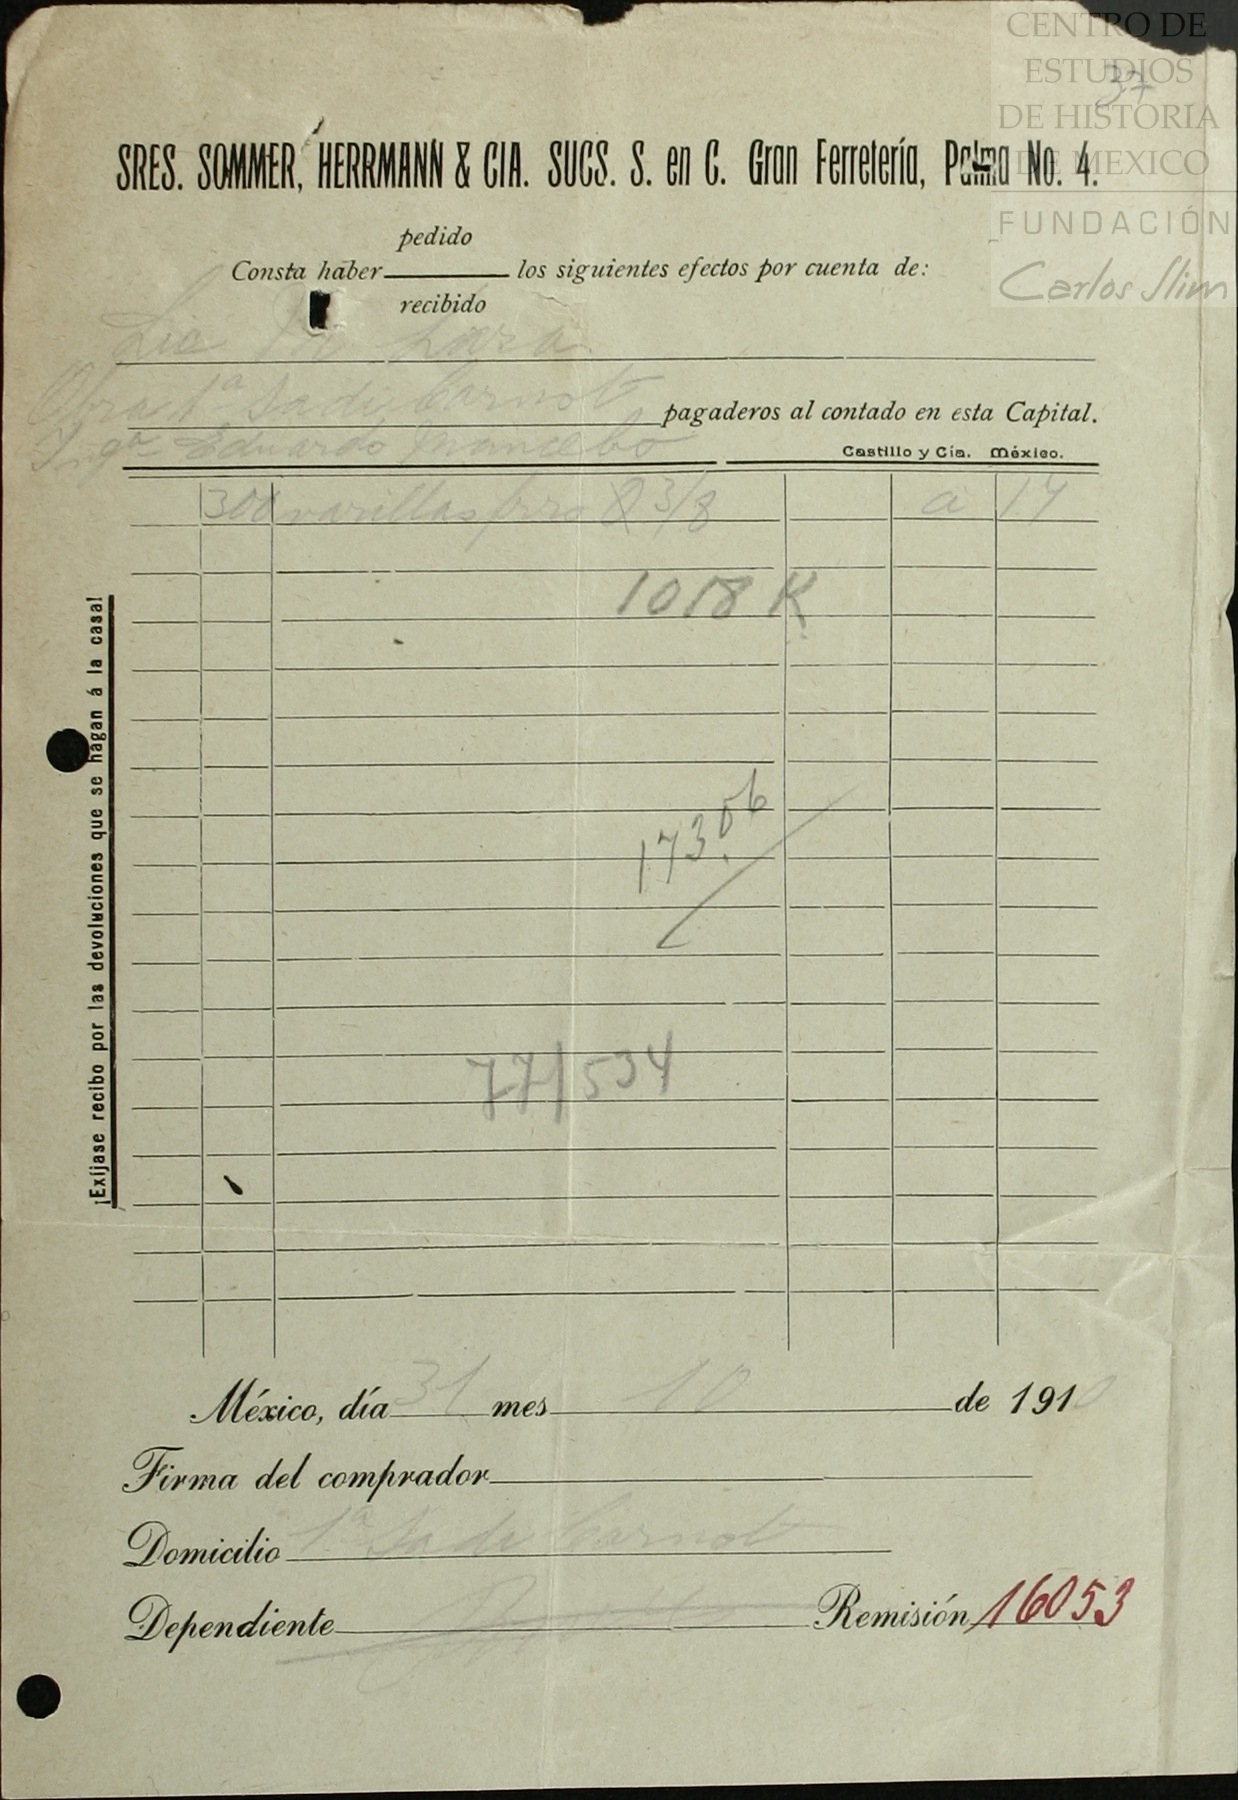 CENTRO DE
ESTUDIOS
DE HISTORIA
DE MEXICO
FUNDACIÓN
Carlos Slim
37
SRES. SOMMER, HERRMANN & CIA. SUCS. S. en C. Gran Ferretería, Palma No. 4.
pedido
Consta haber los siguientes efectos por cuenta de:
recibido
Lic Lara
Obra 1ª Sadi Carnot pagaderos al contado en esta Capital.
Eduardo Mancebo
Castillo y Cía. México.
300 varillas 3/8 a 17
1018 K
173.06
77/534
¡Exíjase recibo por las devoluciones que se hagan á la casa!
México, día 31 mes 10 de 1910
Firma del comprador
Domicilio 1ª Sadi Carnot
Dependiente Remisión 16053